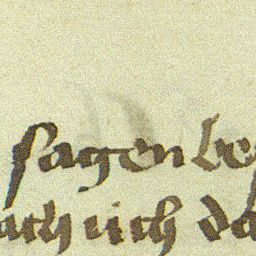 sagen be
ach üch da